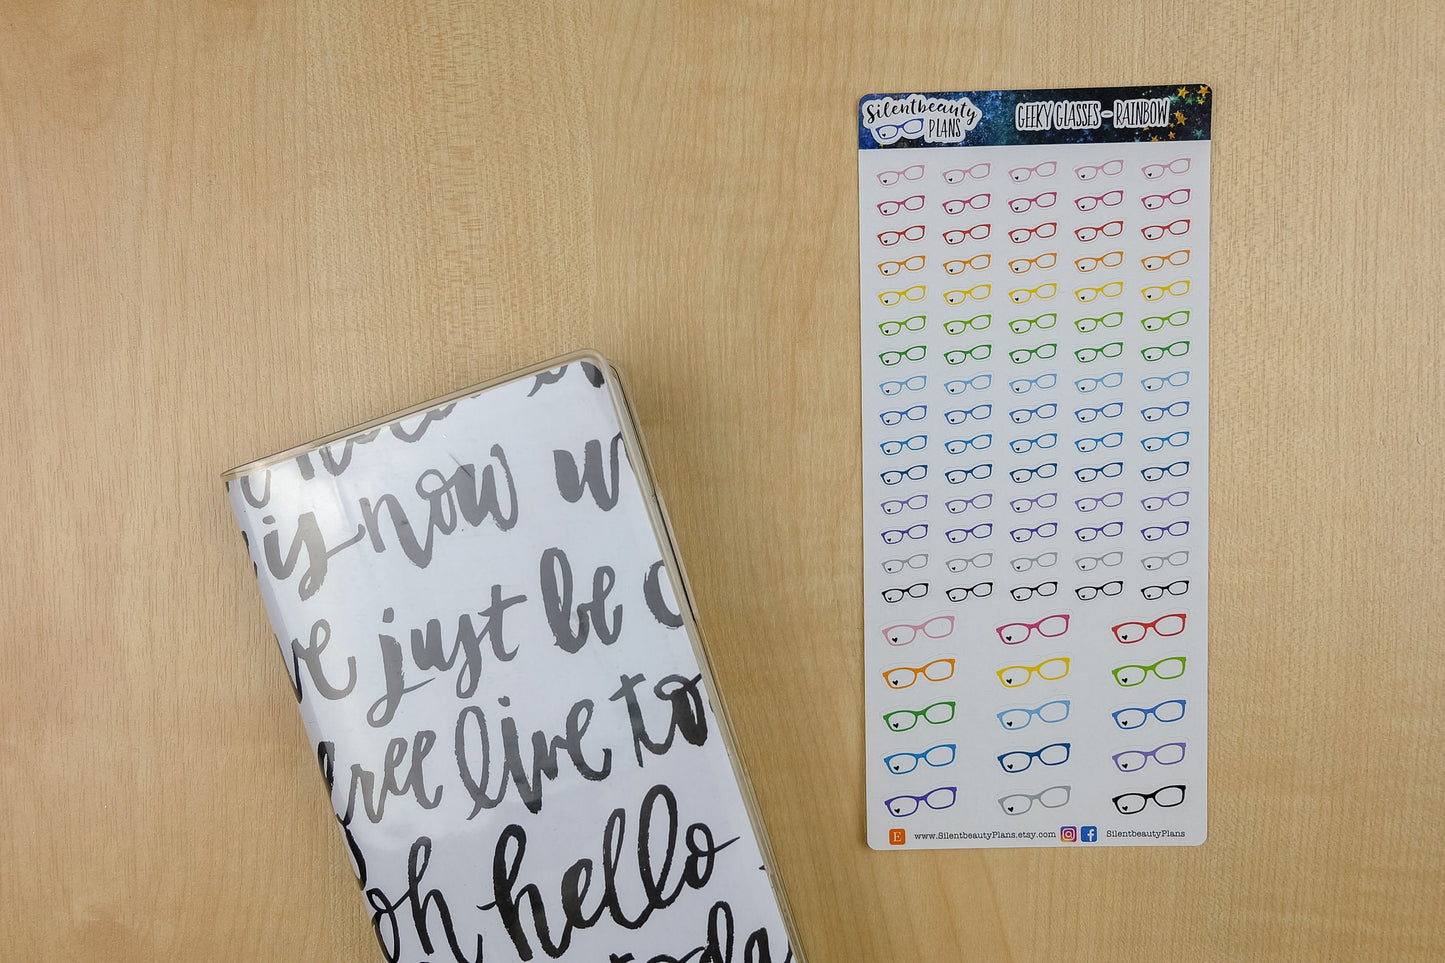 Silentbeauty
PLANS
GEEKY GLASSES - RAINBOW
is now
just be
free live to
oh hello
www.SilentbeautyPlans.etsy.com
SilentbeautyPlans